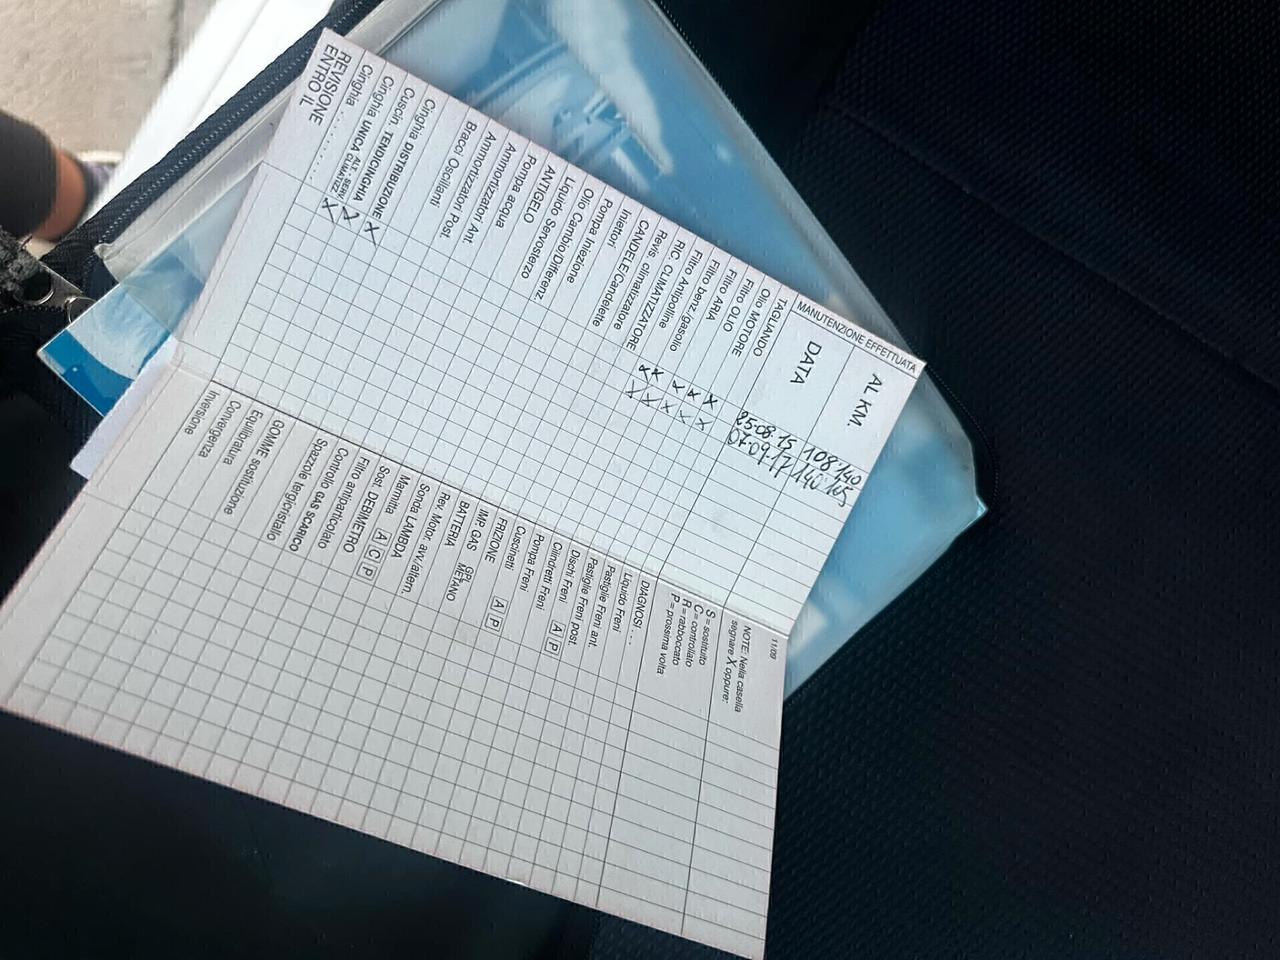 MANUTENZIONE EFFETTUATA
AL KM. 108140 140165
DATA 25.08.15 07.09.17
TAGLIANDO
Olio MOTORE X X
Filtro OLIO X X
Filtro ARIA X X
Filtro benz./gasolio X X
Filtro Antipolline X X
RIC. CLIMATIZZATORE
Revis. climatizzatore
CANDELE/Candelette
Iniettori
Pompa Iniezione
Olio Cambio/Differenz.
Liquido Servosterzo
ANTIGELO
Pompa acqua
Ammortizzatori Ant.
Ammortizzatori Post.
Bracci Oscillanti
Cinghia DISTRIBUZIONE X
Cuscin. TENDICINGHIA X
Cinghia UNICA ALT. SERV. CLIMATIZZ. X
Cinghia ............
REVISIONE
ENTRO IL
11/09
NOTE: Nella casella
segnare X oppure:
S = sostituito
C = controllato
R = rabboccato
P = prossima volta
DIAGNOSI ....
Liquido Freni
Pastiglie Freni ant.
Pastiglie Freni post.
Dischi Freni A P
Cilindretti Freni
Pompa Freni
Cuscinetti A P
FRIZIONE
IMP. GAS GPL METANO
BATTERIA
Rev. Motor. avv/altern.
Sonda LAMBDA
Marmitta A C P
Sost. DEBIMETRO
Filtro antiparticolato
Controllo GAS SCARICO
Spazzole tergicristallo
GOMME sostituzione
Equilibratura
Convergenza
Inversione